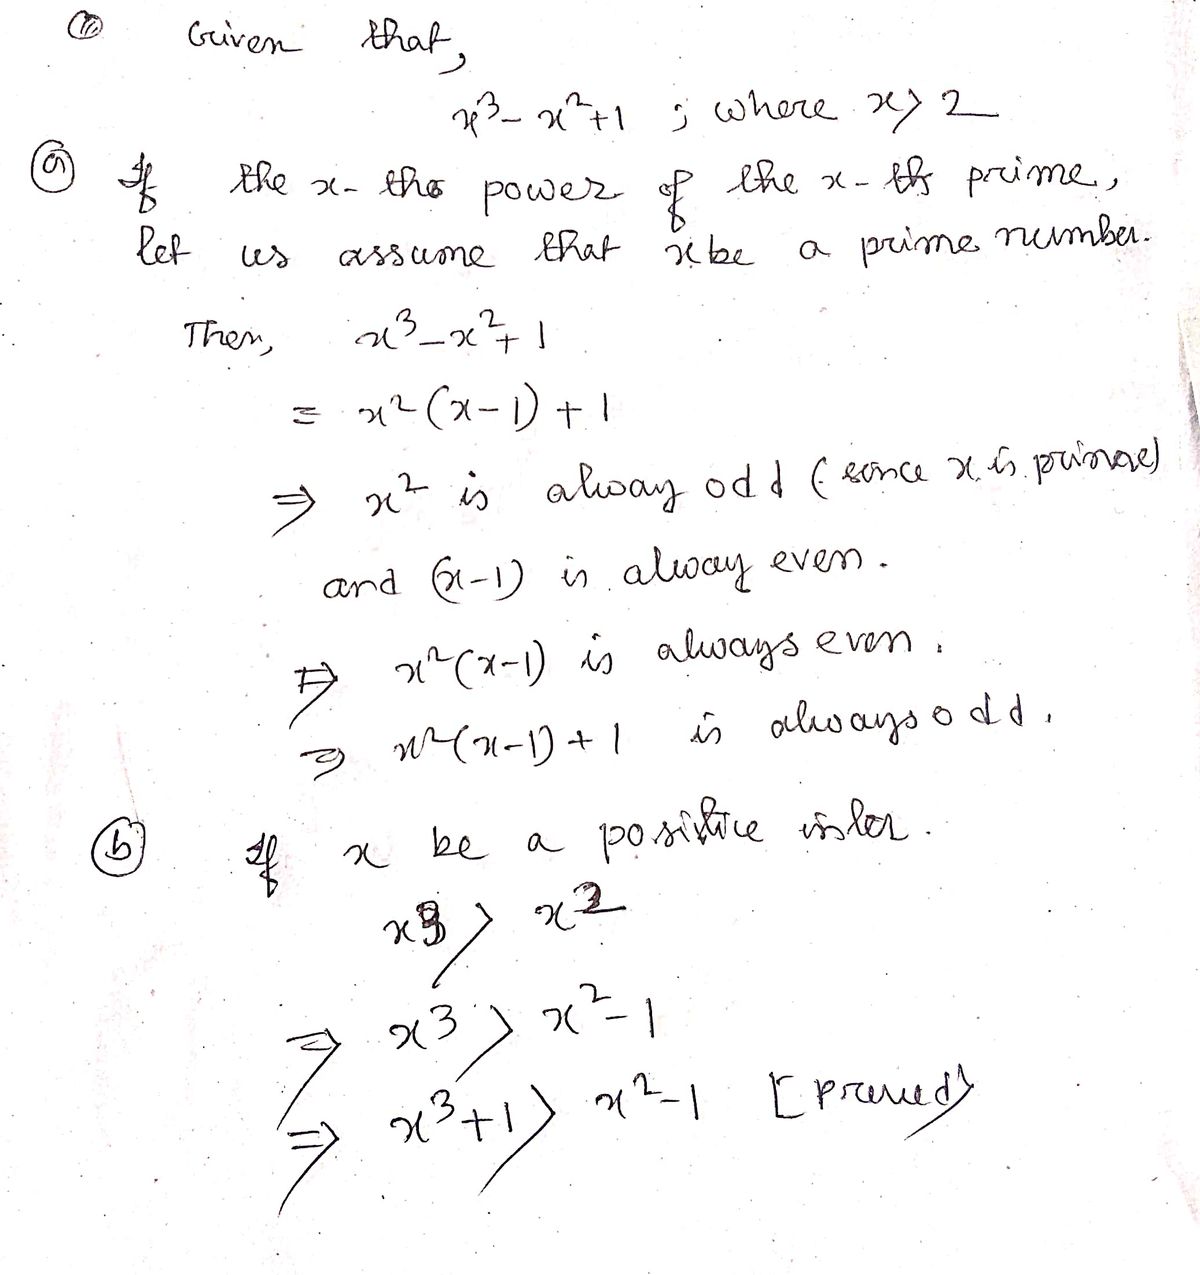 Given that,
x³ - x² + 1 ; where x > 2
(a) If the x- the power of the x- th prime,
let us assume that x be a prime number.
Then, x³ - x² + 1
= x² (x - 1) + 1
⇒ x² is alway odd (since x is prime)
and (x-1) is alway even.
⇒ x²(x-1) is always even.
⇒ x²(x-1) + 1 is always odd.
(b) If x be a positive
x³ > x²
⇒ x³ > x² - 1
⇒ x³ + 1 > x² - 1 [proved]